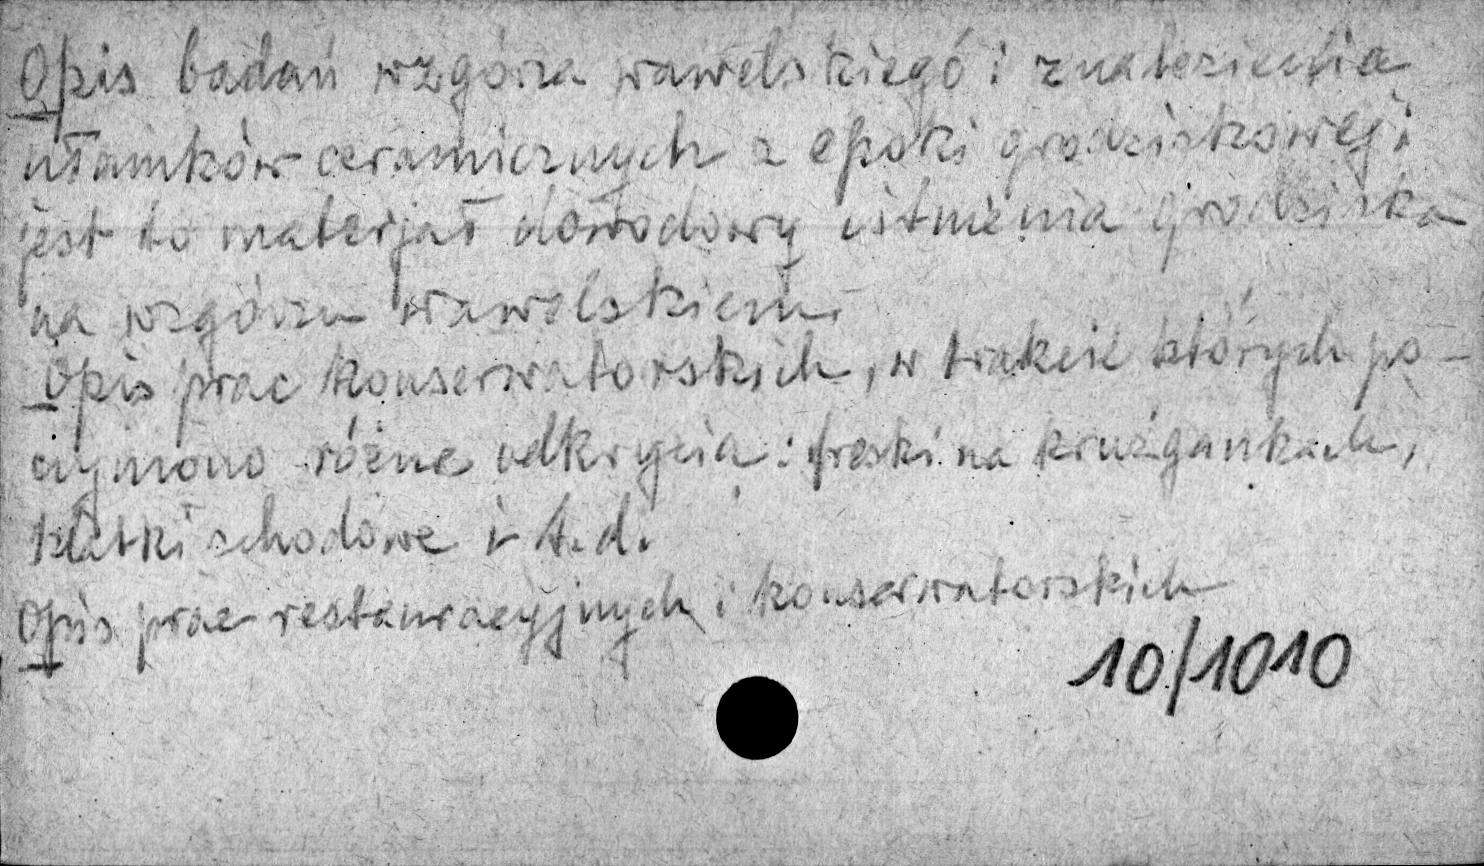 Opis badań wzgórza wawelskiego i znalezienia
ułamków ceramicznych z epoki grodziskowej;
jest to materjał dowodowy istnienia grodziska
na wzgórzu wawelskiem.
Opis prac konserwatorskich, w trakcie których po-
czyniono różne odkrycia: freski na krużgankach,
klatki schodowe i t.d.
Opis prac restauracyjnych i konserwatorskich
10/1010